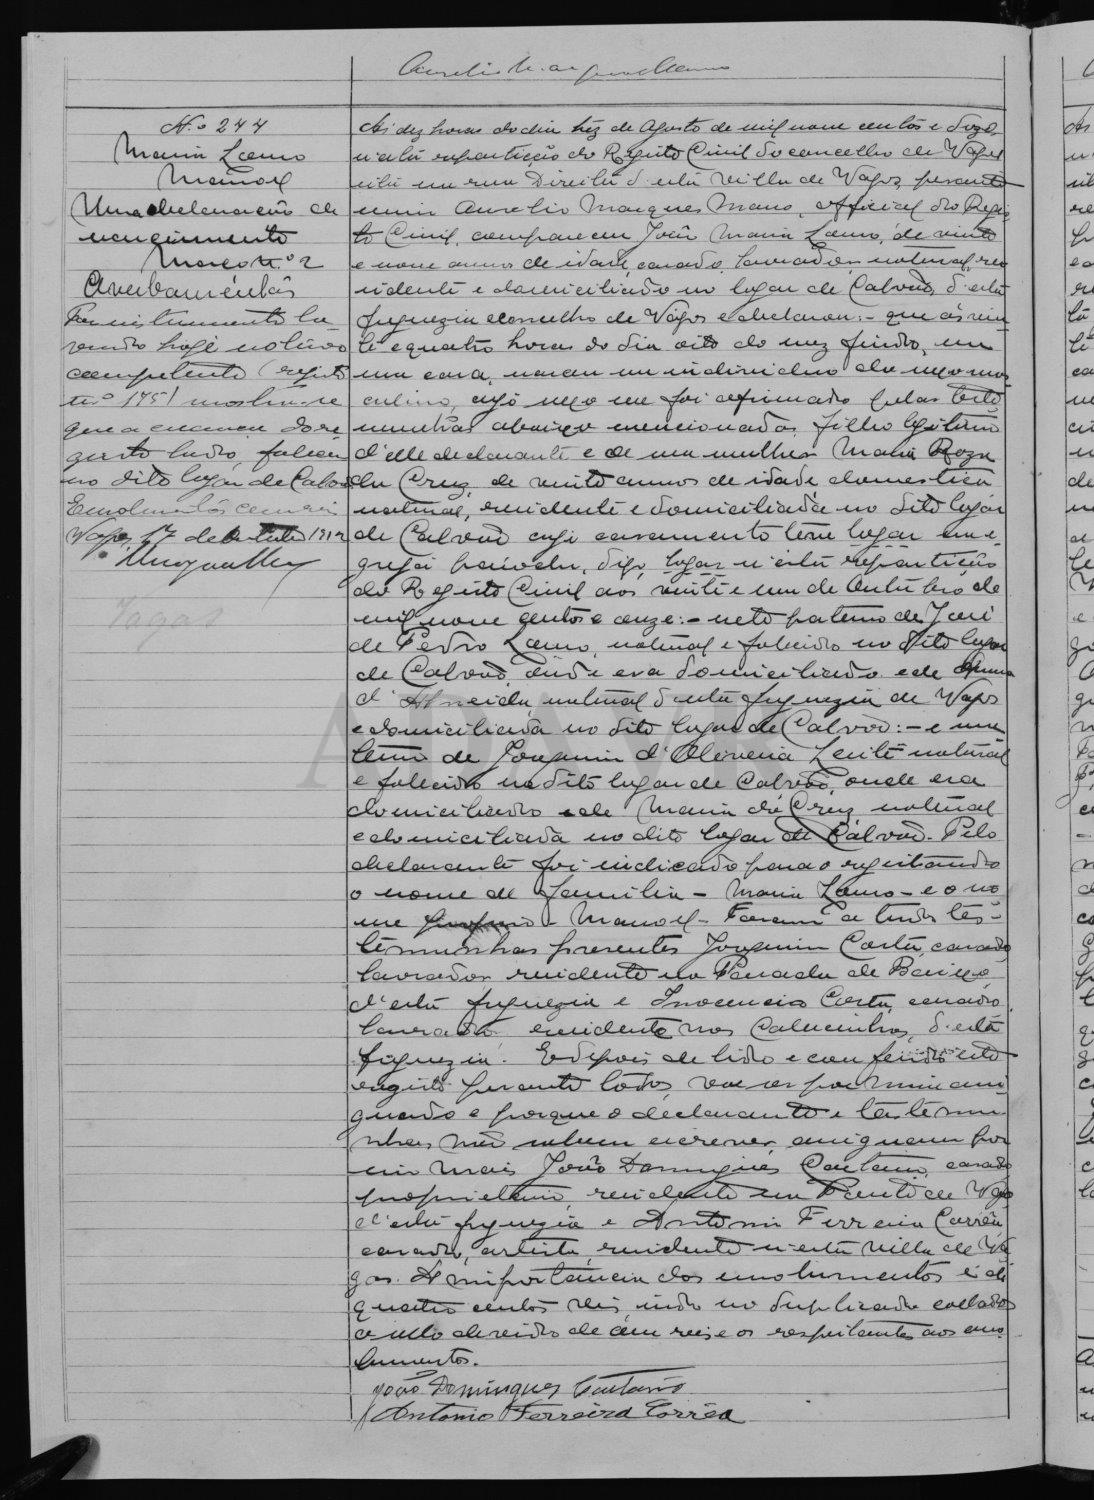 Aurelio Marques Mano
N.º 244
Maria Lauro
Manoel
Uma declaração de
nascimento
Maço n.º 2
Averbamentos
Por instrumento la-
vrado hoje no livro
competente (registo
n.º 175) mostra-se
que a creança do re-
gisto lado, falleceu
no dito logar de Calvão
Emolumentos cem reis
Vagos, 17 de Outubro 1912
Vagos
Ás dez horas do dia trez de Agosto de mil nove centos e doze,
n'esta repartição do Registo Civil do concelho de Vagos
sita na rua Direita d'esta villa de Vagos, perante
mim Aurelio Marques Mano, official do Regis-
to Civil, compareceu João Maria Lauro, de vinte
e nove annos de idade, casado, lavrador, natural, re-
sidente e domiciliado no logar de Calvão, d'esta
freguezia e concelho de Vagos e declarou:- que ás vin-
te e quatro horas do dia oito do mez findo, em
uma casa, nasceu um individuo do sexo mas-
culino, cujo sexo me foi afirmado pelas teste-
munhas abaixo mencionadas, filho legitimo
d'elle declarante e de sua mulher Maria Roza
da Cruz, de vinte annos de idade domestica
natural, residente e domiciliada no dito logar
de Calvão cujo casamento teve logar em e-
greja parochia, digo, logar n'esta repartição
do Registo Civil aos vinte e um de Outubro de
mil nove centos e onze:- neto paterno de José
de Pedro Lauro, natural e falecido no dito logar
de Calvão, onde era domiciliado e de
d'Almeida, natural d'esta freguezia de Vagos
e domiciliada no dito logar de Calvão:- e ma-
terno de Joaquim d'Oliveira Leite natural
e falecido no dito logar de Calvão, onde era
domiciliado e de Maria da Cruz natural
e domiciliada no dito logar de Calvão. Pelo
declarante foi indicado para o registando
o nome de familia - Maria Lauro - e o no-
me proprio - Manoel - Foram a tudo tes-
temunhas presentes Joaquim Costa, casado
lavrador, residente na Parada de Baixo
d'esta freguezia e Inocencio Costa, casado,
lavrador residente nos d'esta
freguezia. E depois de lido e conferido este
registo perante todos, vae ser por mim assi-
gnado e porque o declarante e testemu-
nhas não sabem escrever, assignam por
mim mais João Domingues Caetano, casado
proprietario, residente em de Vagos
d'esta freguezia e Antonio Ferreira Corrêa
casado, artista, residente n'esta villa de Va-
gos. A importancia dos emolumentos é de
quatro centos reis indo no duplicado collados
o sello devido de cem reis e os respeitantes aos emo-
lumentos.
João Domingues Caetano
Antonio Ferreira Corrêa